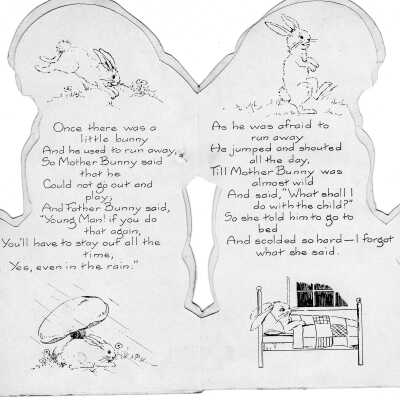 Once there was a
little bunny
And he used to run away,
So Mother Bunny said
that he
Could not go out and
play;
And Father Bunny said,
"Young Man! if you do
that again,
You'll have to stay out all the
time,
Yes, even in the rain."
As he was afraid to
run away
He jumped and shouted
all the day,
Till Mother Bunny was
almost wild
And said, "What shall I
do with the child?"
So she told him to go to
bed
And scolded so hard—I forgot
what she said.